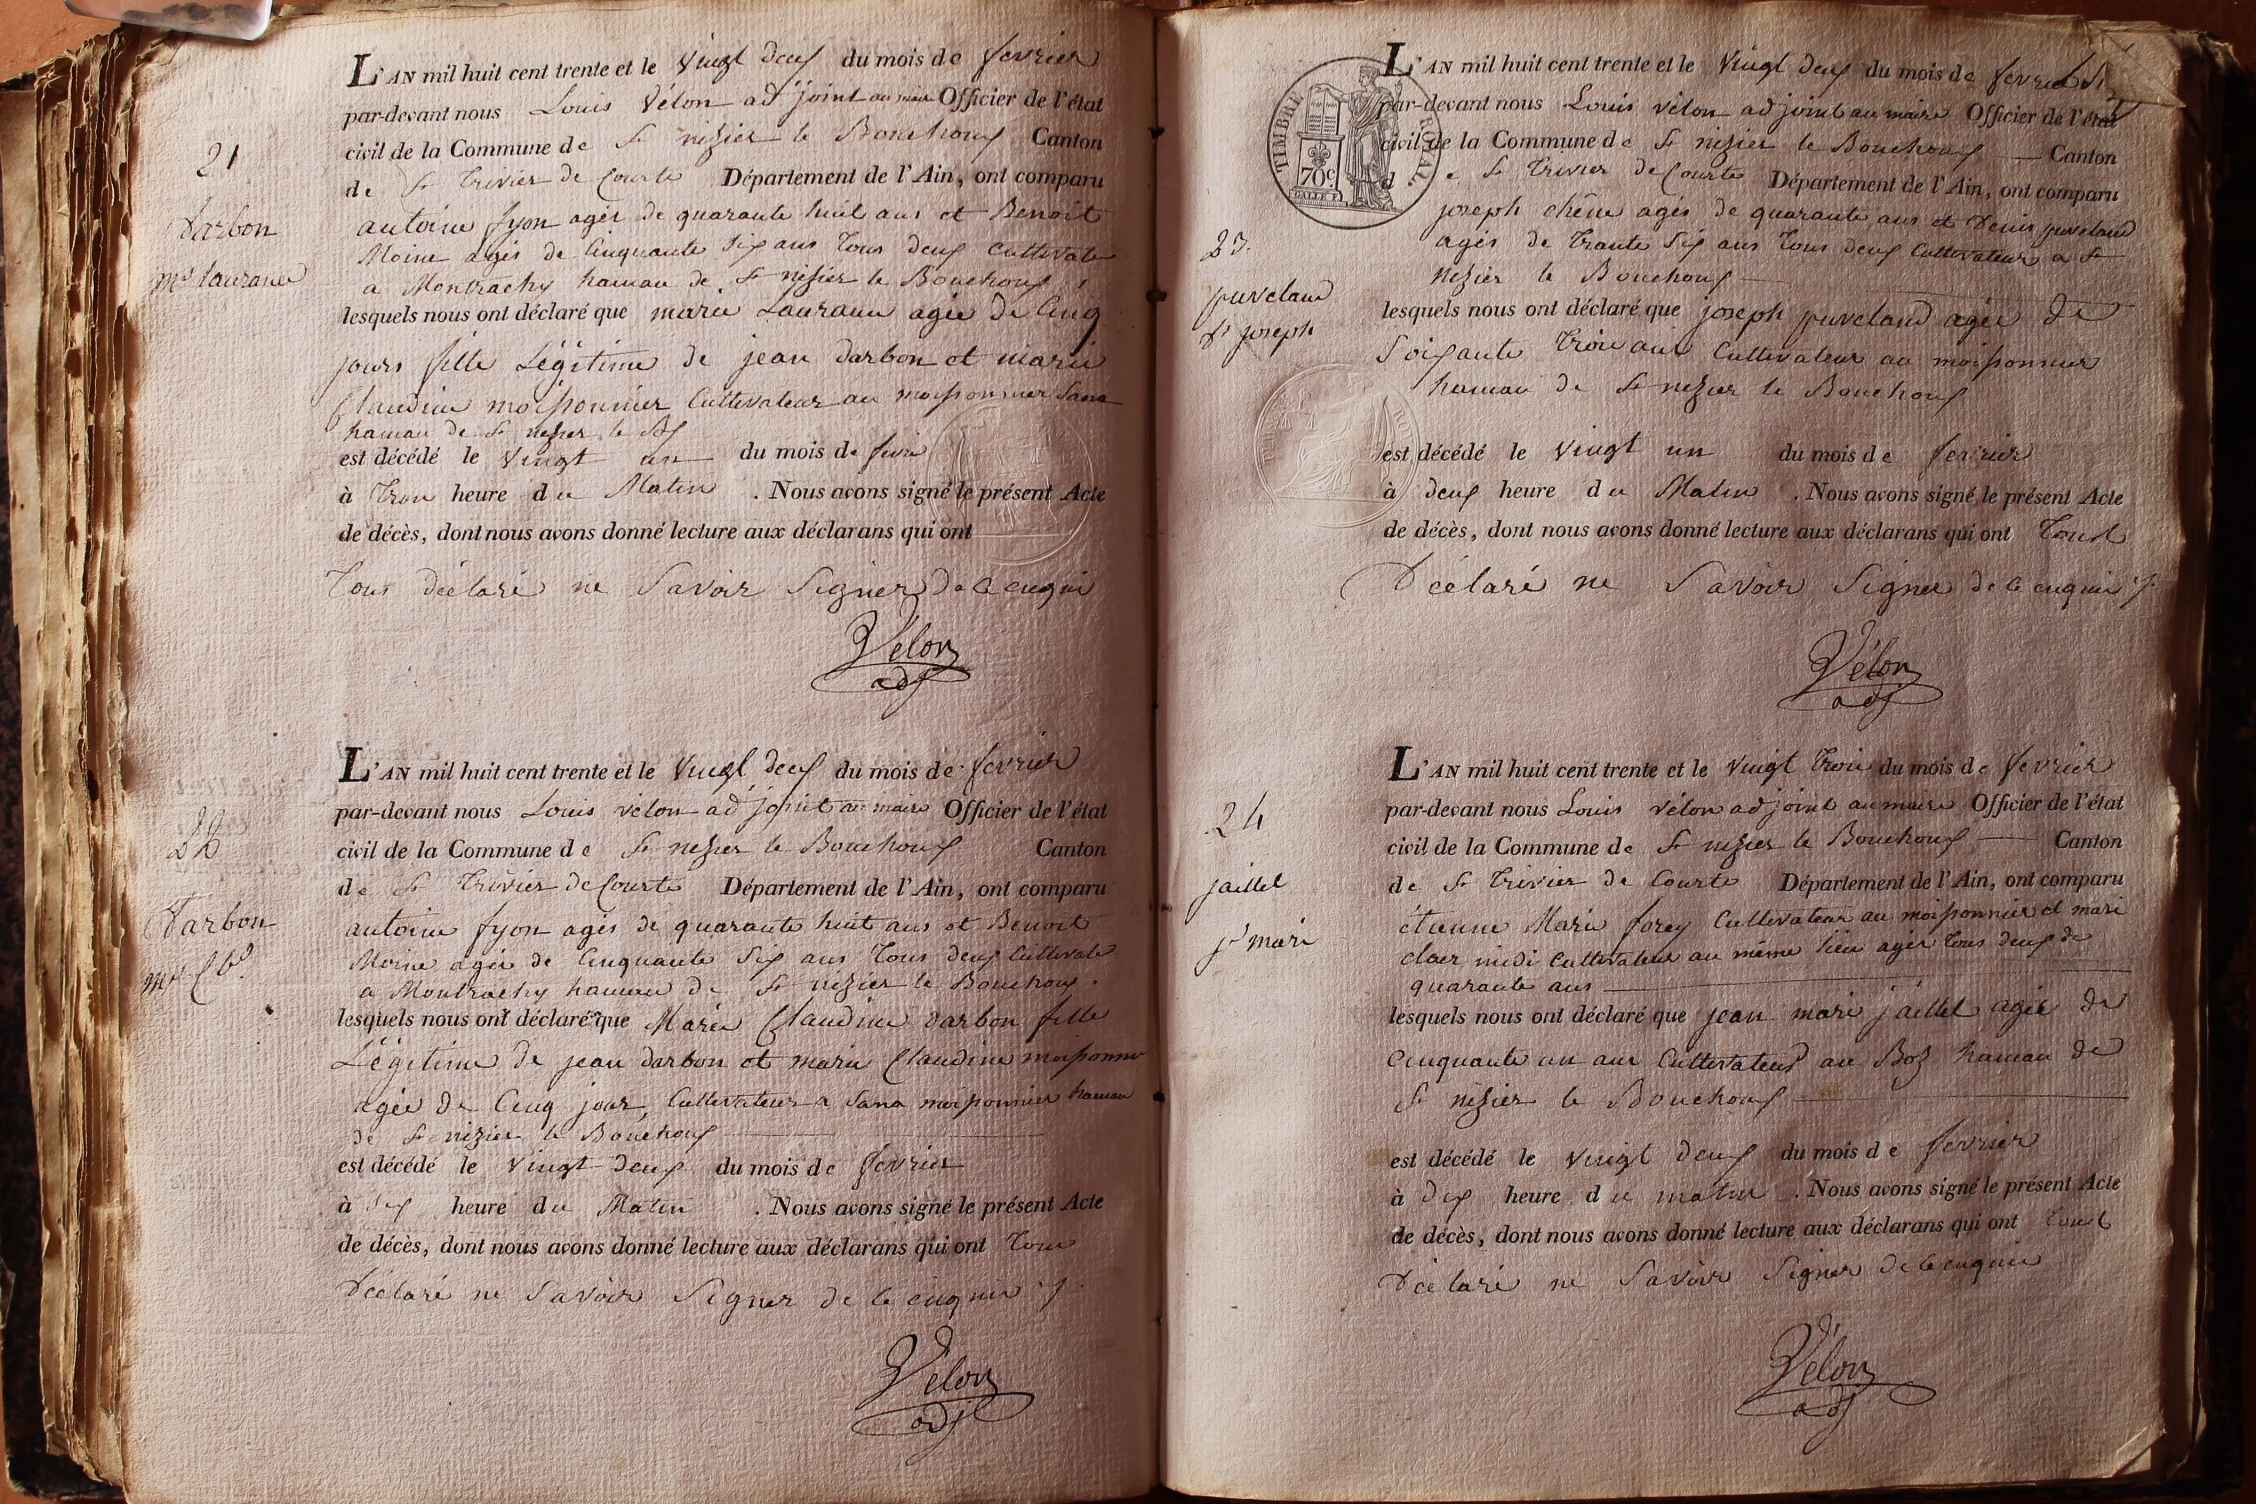 21
Darbon
L'AN mil huit cent trente et le vingt deux du mois de fevrier
par-devant nous Louis Vélon adjoint au maire Officier de l'état
civil de la Commune de St nizier le Bouchoux Canton
de St Trivier de Courte Département de l'Ain, ont comparu
antoine fyon agés de quarante huit ans et Benoit
Moine agés de Cinquante Six ans Tous deux Cultivate
a Montrachy hamau de St nizier le Bouchoux
lesquels nous ont déclaré que marie agée de Cinq
jours fille Légitime de jean darbon et marie
Claudine moissonnier Cultivateur au moissonnier Sana
hamau de St nizier le
est décédé le vingt un du mois de
à Trois heure du Matin . Nous avons signé le présent Acte
de décès, dont nous avons donné lecture aux déclarans qui ont
Tous déclaré ne Savoir Signer de ce enquis
Vélon
adj
22
Darbon
L'AN mil huit cent trente et le vingt deux du mois de fevrier
par-devant nous Louis vélon adjoint au maire Officier de l'état
civil de la Commune de St nizier le Bouchoux Canton
de St Trivier de Courte Département de l'Ain, ont comparu
antoine fyon agés de quarante huit ans et Benoit
Moine agée de Cinquante Six ans Tous deux Cultivate
a Montrachy hamau de St nizier le Bouchoux.
lesquels nous ont déclaré que Marie Claudine darbon fille
Légitime de jean darbon et marie Claudine
agée de Cinq jour, Cultivateur a Sana moissonnier hamau
de St nizier le Bouchoux
est décédé le vingt deux du mois de fevrier
à heure du Matin . Nous avons signé le présent Acte
de décès, dont nous avons donné lecture aux déclarans qui ont Tous
Déclaré ne Savoir Signer de ce enquis
Vélon
adj
TIMBRE ROYAL.
70c.
23.
puveland
Dt joseph
L'AN mil huit cent trente et le vingt deux du mois de
par-devant nous Louis vélon adjoint au maire Officier de l'état
civil de la Commune de St nizier le Bouchoux Canton
de St Trivier de Courte Département de l'Ain, ont comparu
joseph chêne agés de quarante ans et Denis puveland
agés de Trante Six ans Tous deux Cultivateur a St
nizier le Bouchoux
lesquels nous ont déclaré que joseph puveland agée de
Soixante Trois ans Cultivateur au moissonnier
hamau de St nizier le Bouchoux
est décédé le vingt un du mois de fevrier
à deux heure du Matin . Nous avons signé le présent Acte
de décès, dont nous avons donné lecture aux déclarans qui ont
Déclaré ne Savoir Signer de ce enquis
Vélon
adj
24
jaillet
jn mari
L'AN mil huit cent trente et le vingt trois du mois de fevrier
par-devant nous Louis vélon adjoint au maire Officier de l'état
civil de la Commune de St nizier le Bouchoux Canton
de St Trivier de Courte Département de l'Ain, ont comparu
étienne Marie forey Cultivateur au moissonnier et mari
clair midi Cultivateur au même lieu agée Tous deux de
quarante ans
lesquels nous ont déclaré que jean mari jaillet agée de
Cinquante un ans Cultivateur au Boz hamau de
St nizier le Bouchoux
est décédé le vingt deux du mois de fevrier
à dix heure du matin . Nous avons signé le présent Acte
de décès, dont nous avons donné lecture aux déclarans qui ont
Déclaré ne Savoir Signer de ce enquis
Vélon
adj